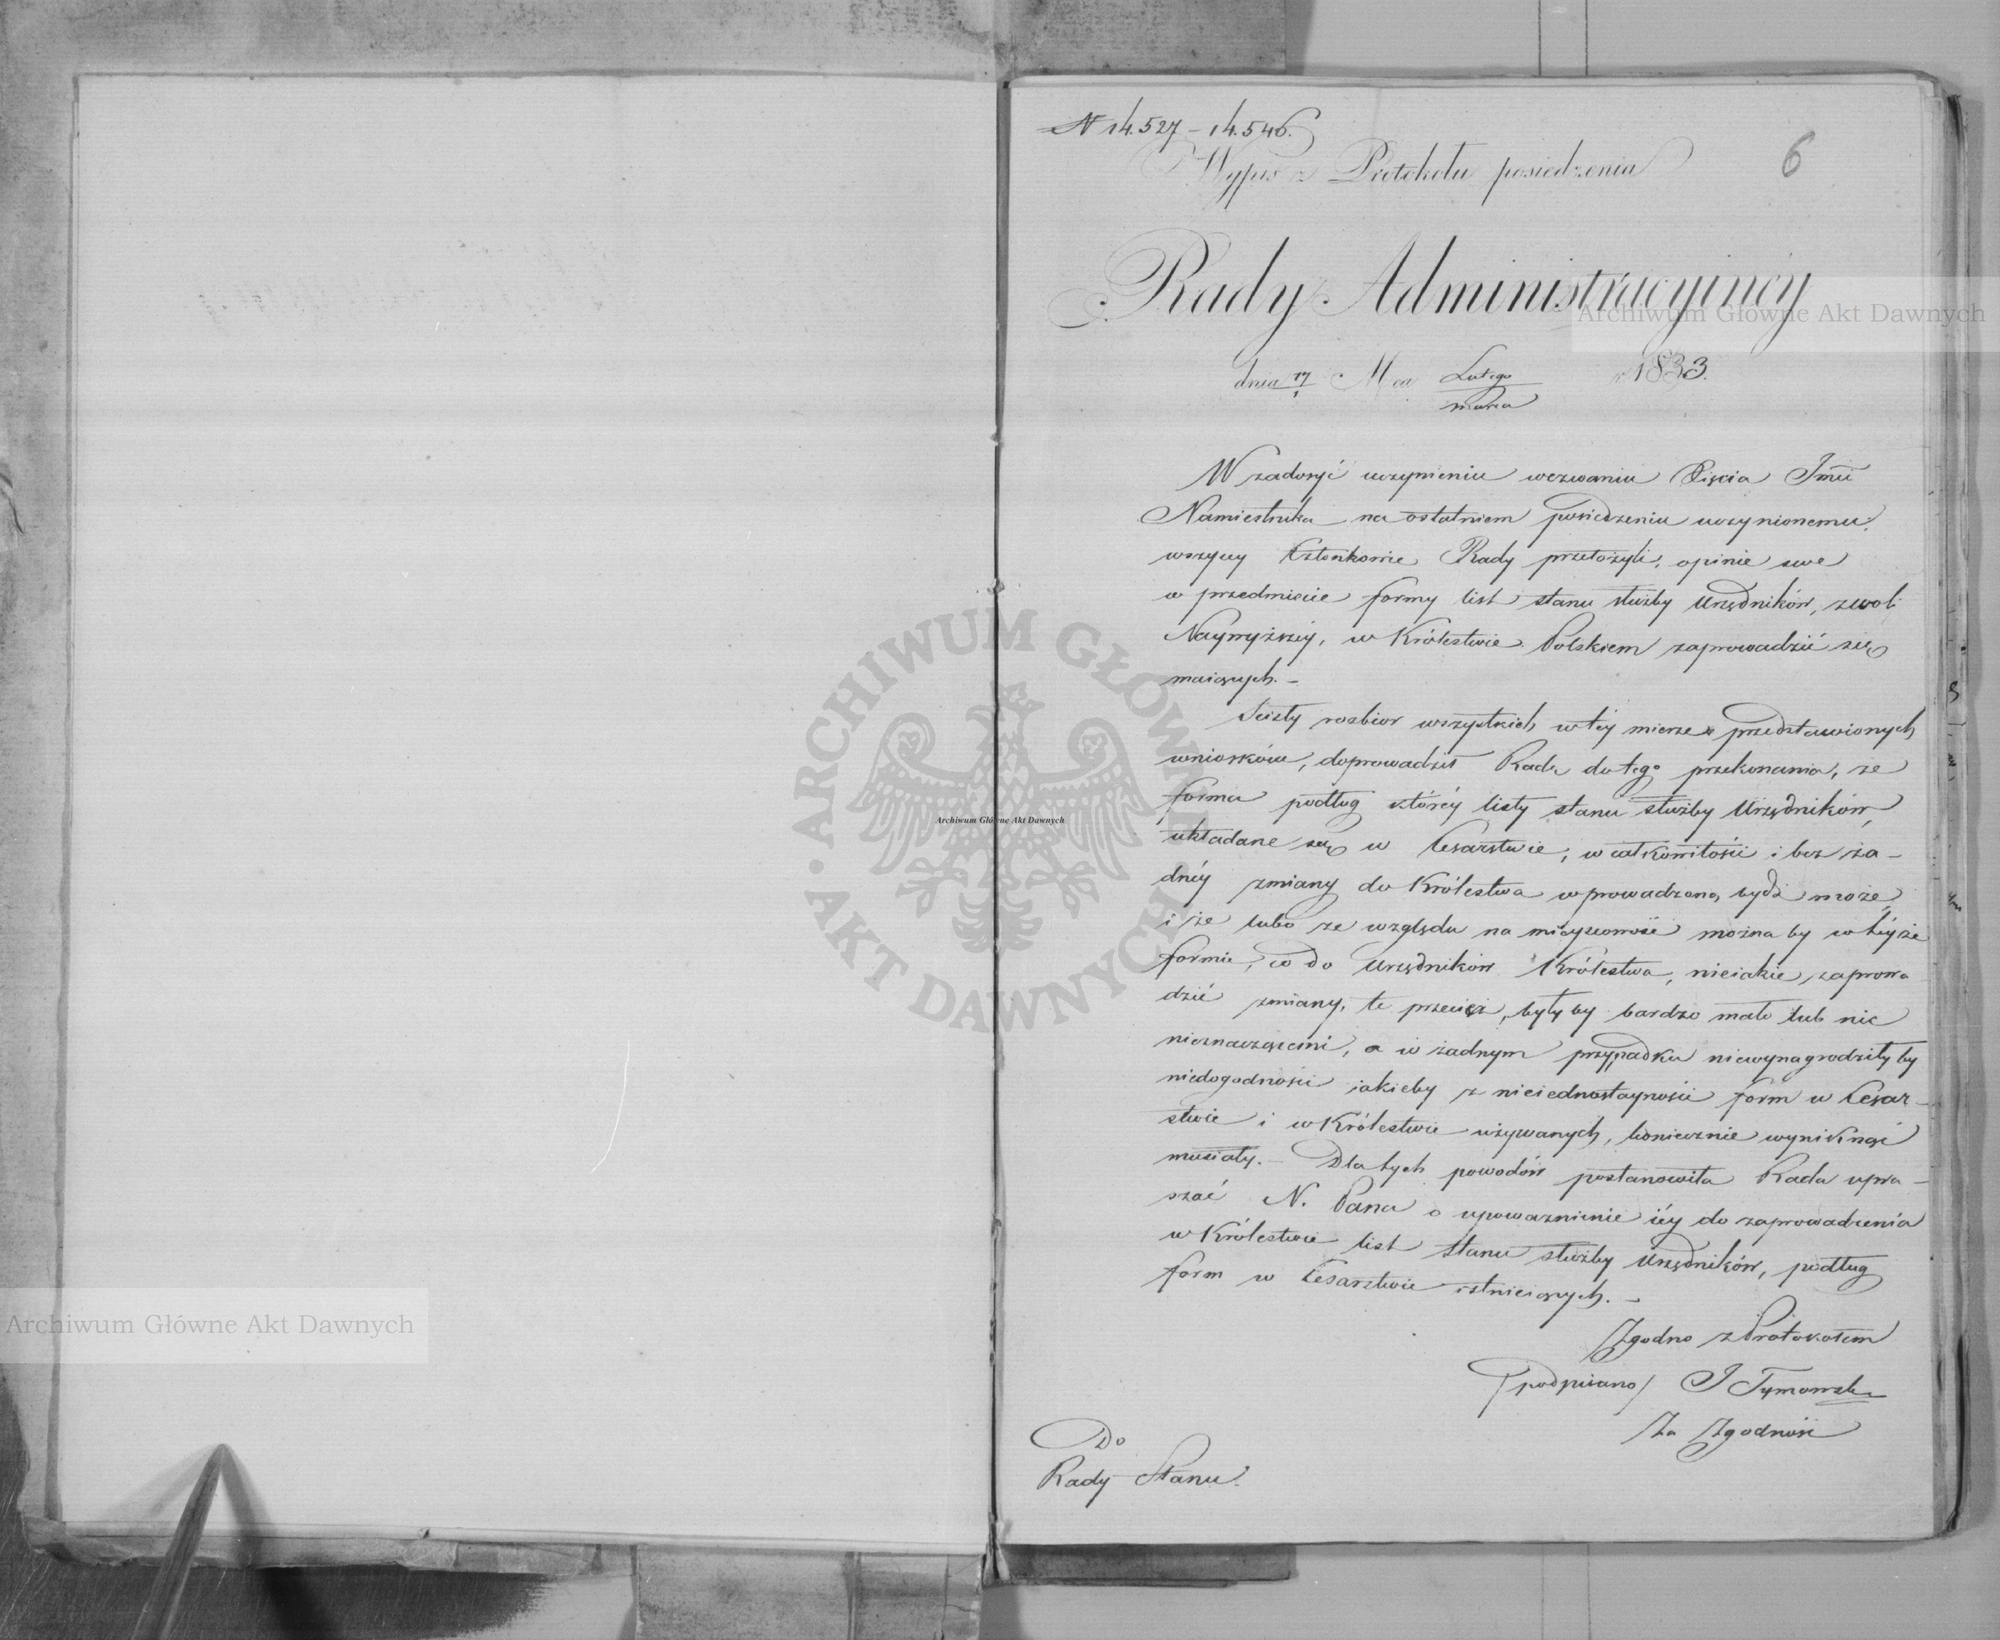 N 14.527 – 14.546.
6
Wypis z Protokołu posiedzenia
Rady Administracyiney
dnia 17/1 Mca Lutego/marca r 1833.
W zadosyć uczynieniu wezwaniu Xięcia Jmci
Namiestnika na ostatniem posiedzeniu uczynionemu,
wszyscy Członkowie Rady przełożyli, opinie swe
w przedmiocie formy list stanu służby Urzędników, z woli
Naywyższéy, w Królestwie Polskiem zaprowadzić się
maiących. –
Ścisły rozbior wszystkich w téy mierze przedstawionych
wniosków, doprowadził Radę do tego przekonania, że
forma podług któréy listy stanu służby Urzędników,
układane są w Cesarstwie, w całkowitości i bez ża–
dnéy zmiany do Królestwa wprowadzoną bydź może,
i że lubo ze względu na mieyscowość można by w téyże
formie, co do Urzędników Królestwa, nieiakie zaprowa
dzić zmiany, te przecież, byłyby bardzo mało lub nic
nieznaczącemi, a w żadnym przypadku niewynagrodziłyby
niedogodności jakieby z nieiednostayności form w Cesar–
stwie i w Królestwie używanych, koniecznie wyniknąć
musiały. – Dla tych powodów postanowiła Rada upra–
szać N. Pana o upoważnienie iéy do zaprowadzenia
w Królestwie list stanu służby Urzędników, podług
form w Cesarstwie istnieiących. –
Zgodno z Protokołem
/podpisano/ J Tymowski
Za Zgodność
Do
Rady Stanu.
Archiwum Główne Akt Dawnych
Archiwum Główne Akt Dawnych
Archiwum Główne Akt Dawnych
ARCHIWUM GŁÓWNE · AKT DAWNYCH ·